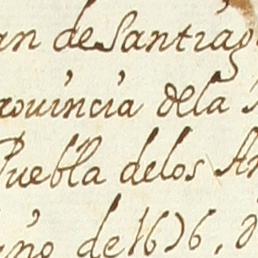 an de Santiag
rouincia dela
Puebla delos An
ño de 1636, d